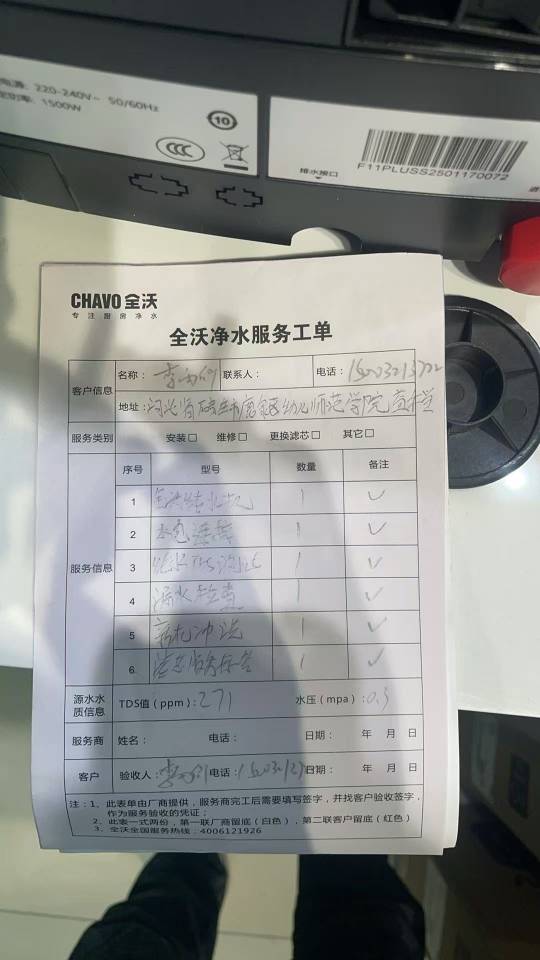 电源: 220-240V~ 50/60Hz
定功率: 1500W
10
CCC
排水接口
F11PLUSS2501170072
CHAVO 全沃
专注厨房净水
全沃净水服务工单
客户信息
名称: 李
联系人:
电话:
地址: 河北省 幼儿师范学院
服务类别
安装□ 维修□ 更换滤芯□ 其它□
服务信息
序号 型号 数量 备注
1 1 ✓
2 水电连接 1 ✓
3 1 ✓
4 漏水检查 1 ✓
5 新机冲洗 1 ✓
6 1 ✓
源水水质信息
TDS值(ppm): 271 水压(mpa): 0.3
服务商 姓名: 电话: 日期: 年 月 日
客户 验收人: 李 电话: 日期: 年 月 日
注: 1、此表单由厂商提供, 服务商完工后需要填写签字, 并找客户验收签字,
作为服务验收的凭证;
2、此表一式两份, 第一联厂商留底(白色), 第二联客户留底(红色)
3、全沃全国服务热线: 4006121926